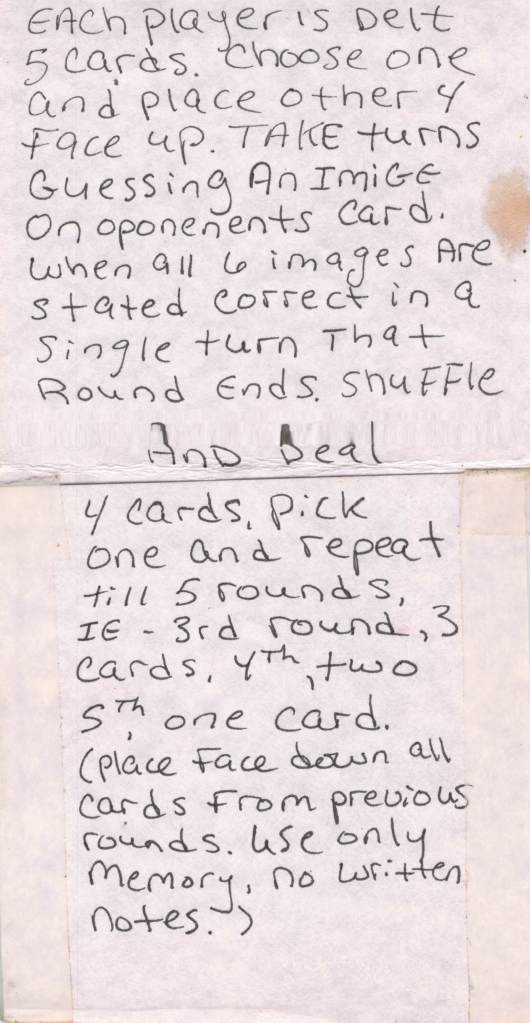 EAch player is Delt
5 cards. Choose one
and place other 4
Face up. TAKE turns
Guessing An ImiGE
On oponenents card.
When all 6 images Are
stated correct in a
single turn That
Round Ends. ShuFFle
And Deal
4 cards, pick
one and repeat
till 5 rounds,
IE - 3rd round, 3
cards, 4th, two
5th, one card.
(place Face down all
cards From previous
rounds. Use only
Memory, no written
notes.)